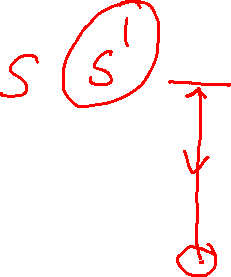 S S'